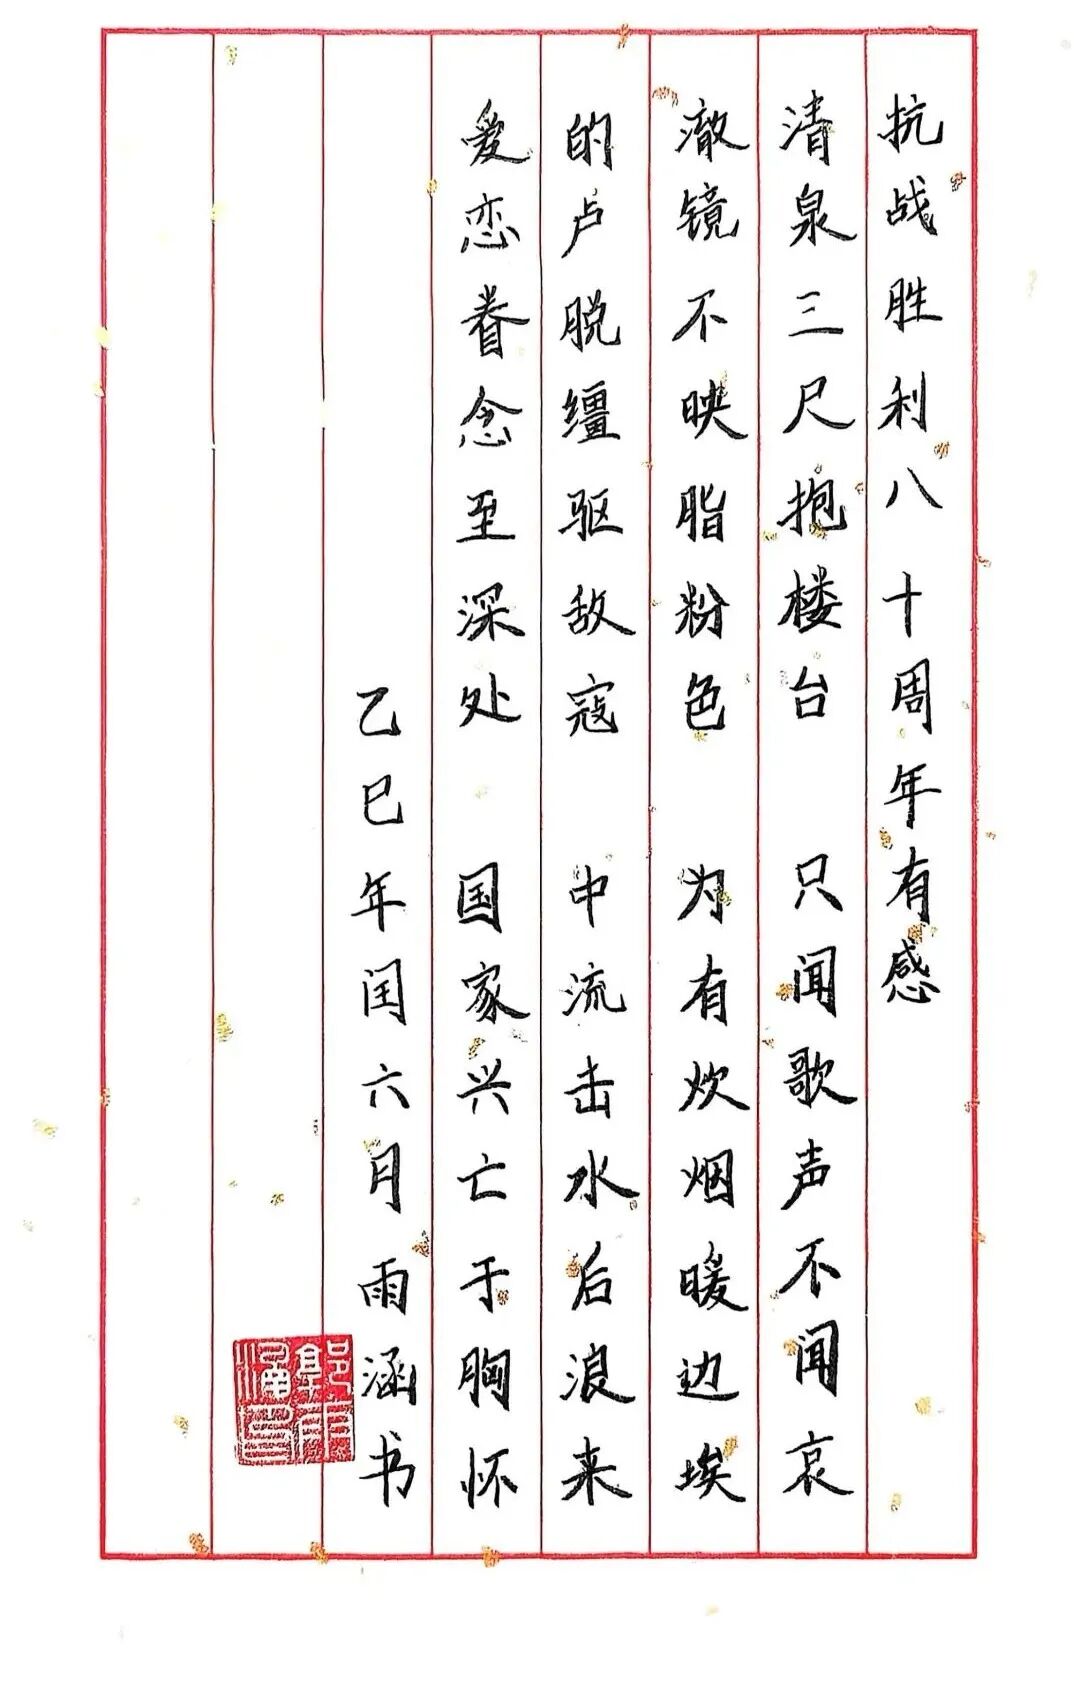 抗战胜利八十周年有感
清泉三尺抱楼台 只闻歌声不闻哀
澈镜不映脂粉色 为有炊烟暖边埃
的卢脱缰驱敌寇 中流击水后浪来
爱恋眷念至深处 国家兴亡于胸怀
乙巳年闰六月雨涵书